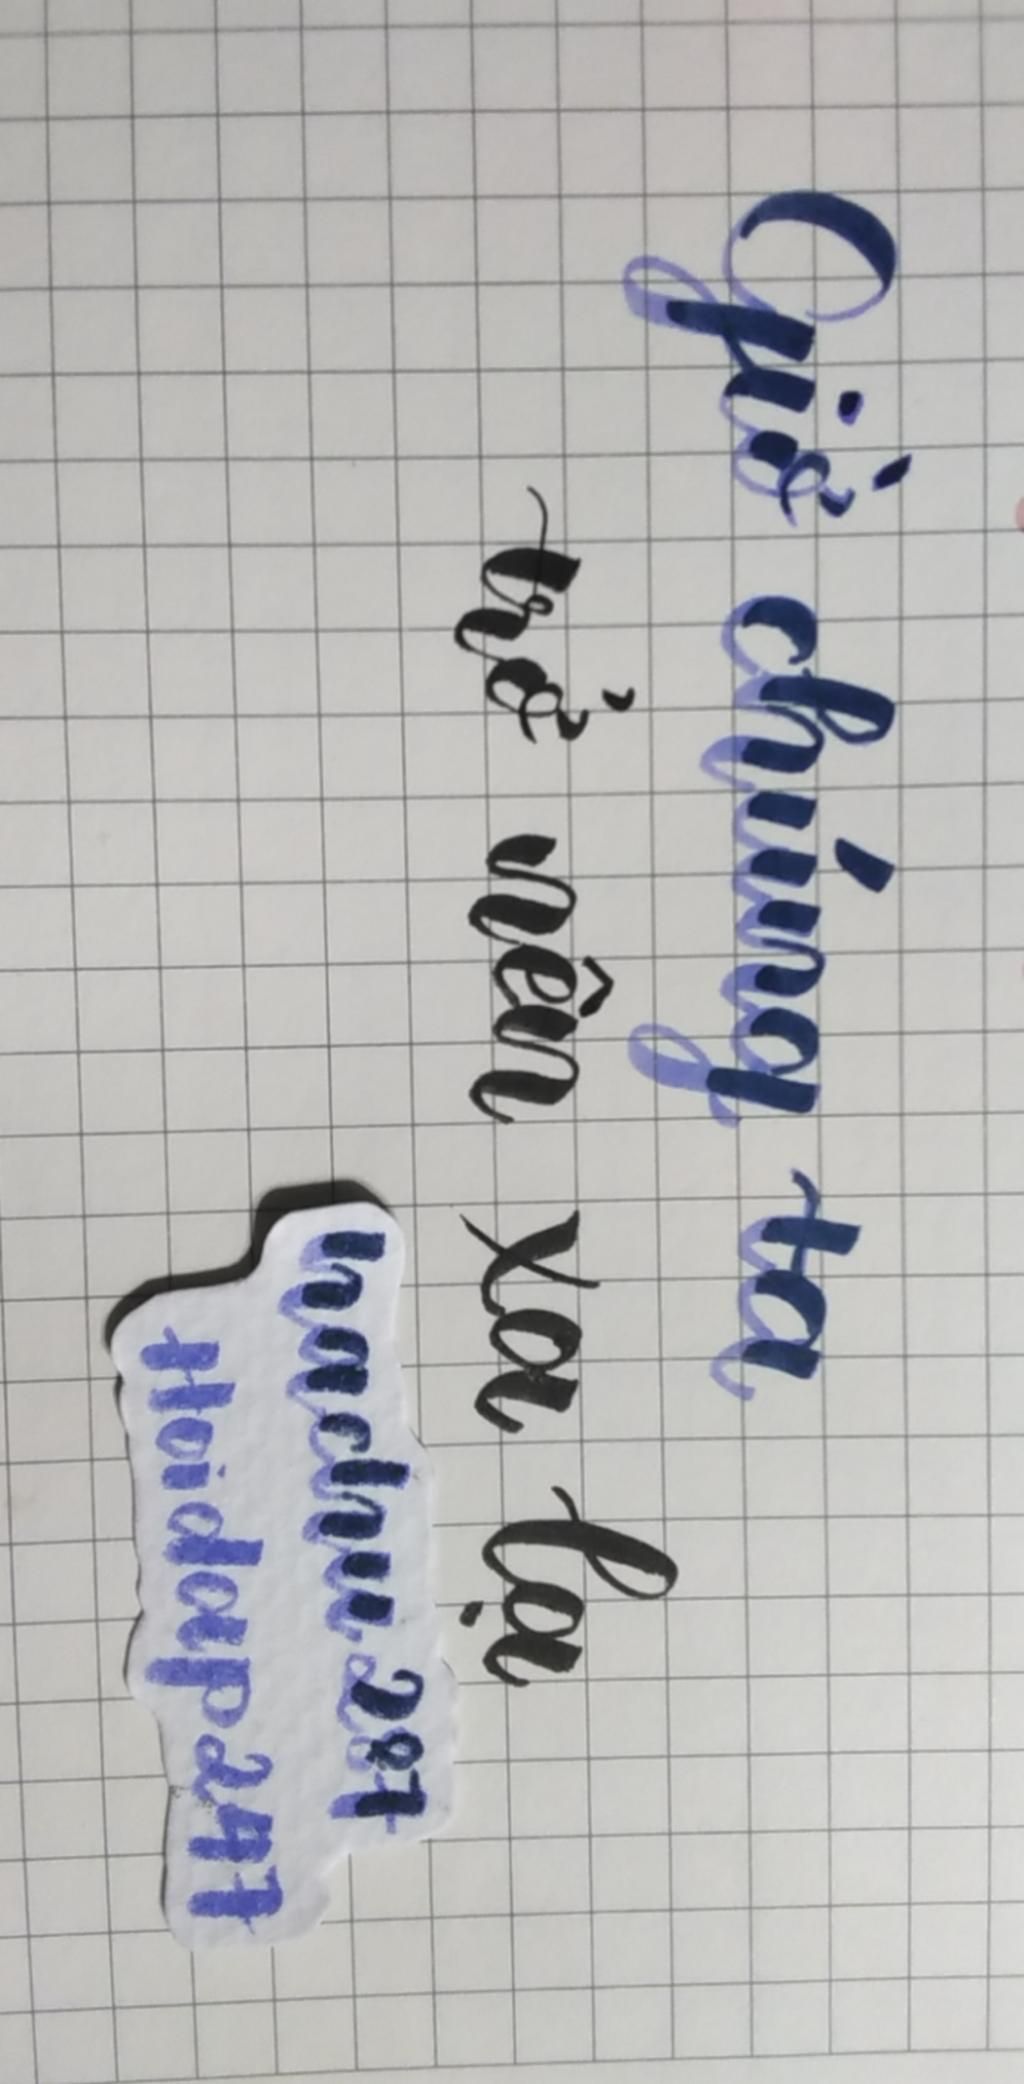 Giờ chúng ta
trở nên xa lạ
nachu.287
Hoidap247